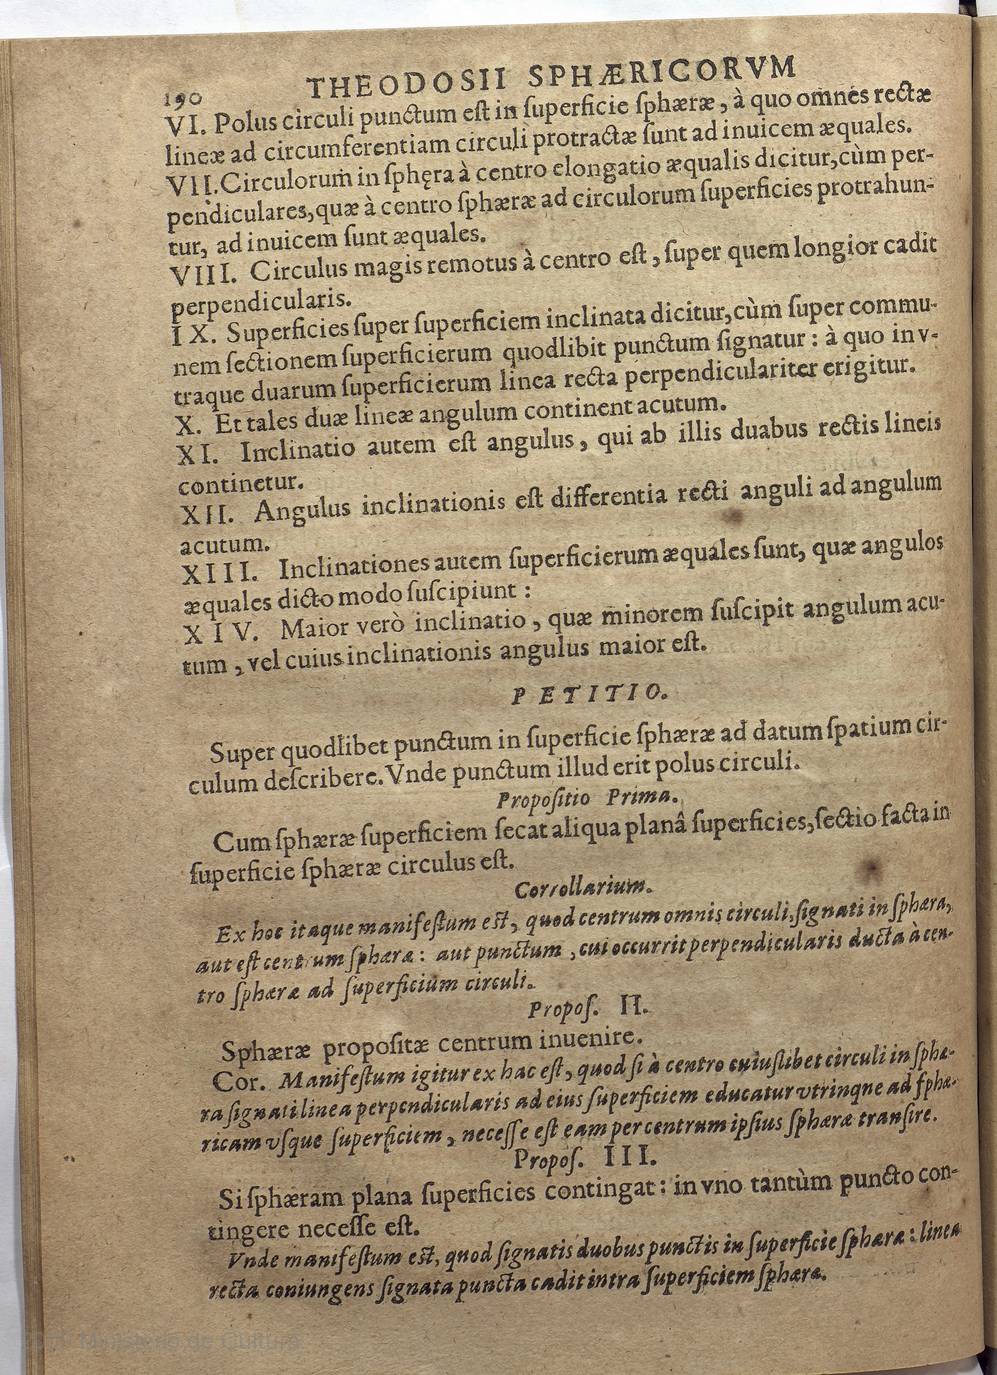 190
THEODOSII SPHÆRICORVM
VI. Polus circuli punctum eſt in ſuperficie ſphæræ, à quo omnes rectæ
lineæ ad circumferentiam circuli protractæ ſunt ad inuicem æquales.
VII. Circulorum in ſphęra à centro elongatio æqualis dicitur, cùm per-
pendiculares, quæ à centro ſphæræ ad circulorum ſuperficies protrahun-
tur, ad inuicem ſunt æquales.
VIII. Circulus magis remotus à centro eſt, ſuper quem longior cadit
perpendicularis.
IX. Superficies ſuper ſuperficiem inclinata dicitur, cùm ſuper commu-
nem ſectionem ſuperficierum quodlibit punctum ſignatur: à quo in v-
traque duarum ſuperficierum linea recta perpendiculariter erigitur.
X. Et tales duæ lineæ angulum continent acutum.
XI. Inclinatio autem eſt angulus, qui ab illis duabus rectis lineis
continetur.
XII. Angulus inclinationis eſt differentia recti anguli ad angulum
acutum.
XIII. Inclinationes autem ſuperficierum æquales ſunt, quæ angulos
æquales dicto modo ſuſcipiunt:
XIV. Maior verò inclinatio, quæ minorem ſuſcipit angulum acu-
tum, vel cuius inclinationis angulus maior eſt.
PETITIO.
Super quodlibet punctum in ſuperficie ſphæræ ad datum ſpatium cir-
culum deſcribere. Vnde punctum illud erit polus circuli.
Propoſitio Prima.
Cum ſphæræ ſuperficiem ſecat aliqua planâ ſuperficies, ſectio facta in
ſuperficie ſphæræ circulus eſt.
Corrollarium.
Ex hoc itaque manifeſtum eſt, quod centrum omnis circuli, ſignati in ſphæra,
aut eſt centrum ſphæræ: aut punctum, cui occurrit perpendicularis ducta à cen-
tro ſphæræ ad ſuperficium circuli.
Propoſ. II.
Sphæræ propoſitæ centrum inuenire.
Cor. Manifeſtum igitur ex hac eſt, quod ſi à centro cuiuſlibet circuli in ſphæ-
ra ſignati linea perpendicularis ad eius ſuperficiem educatur vtrinque ad ſphæ-
ricam vſque ſuperficiem, neceſſe eſt eam per centrum ipſius ſphæræ tranſire.
Propoſ. III.
Si ſphæram plana ſuperficies contingat: in vno tantùm puncto con-
tingere neceſſe eſt.
Vnde manifeſtum eſt, quod ſignatis duobus punctis in ſuperficie ſphæræ: linea
recta coniungens ſignata puncta cadit intra ſuperficiem ſphæræ.
Ministerio de Cultura